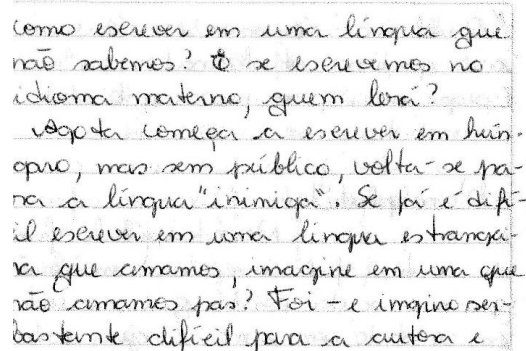 como escrever em uma língua que
não sabemos? E se escrevemos no
idioma materno, quem lerá?
Agota começa a escrever em hún-
garo, mas sem público, volta-se pa-
ra a língua "inimiga". Se já é difí-
cil escrever em uma língua estrangei-
ra que amamos, imagine em uma que
não amamos pas? Foi - e imgino ser-
bastante difícil para a autora e